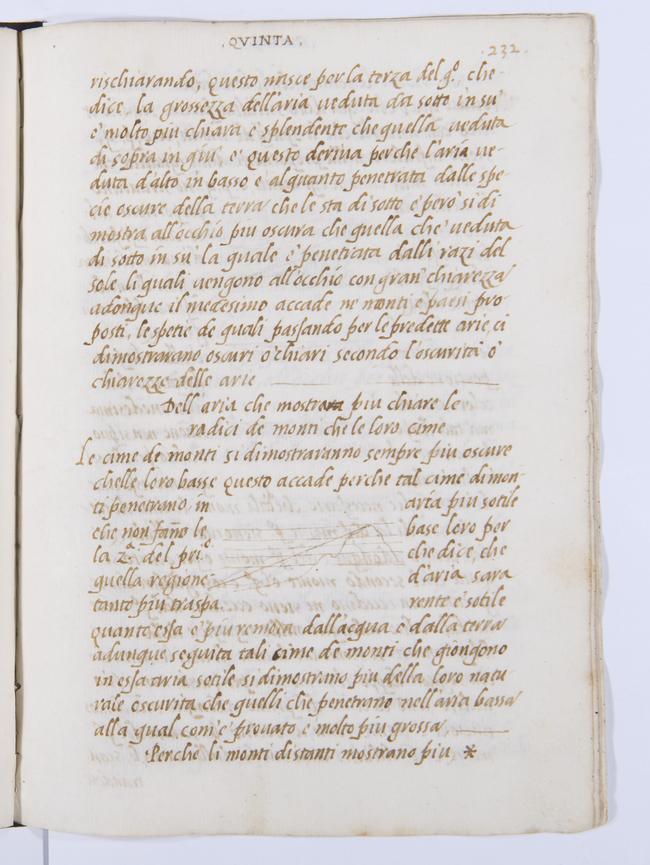 .QVINTA.
.232.
rischiarando, questo nasce per la terza del q.º che
dice, la grossezza dell'aria ueduta da sotto in su
e' molto piu chiara e splendente che quella ueduta
di sopra in giu, e questo deriua perche l'aria ue-
duta d'alto in basso e alquanto penetrata dalle spe-
cie oscure della terra che le sta di sotto e però si di
mostra all'occhio piu oscura che quella che ueduta
di sotto in su la quale e penetrata dalli razi del
sole li quali uengono all'occhio con gran chiarezza
adonque il medesimo accade ne monti e paesi pro-
posti, le spetie de quali passando per le predette arie, ci
dimostrarano oscuri o chiari secondo l'oscurità o
chiarezze delle arie
Dell'aria che mostra piu chiare le
radici de monti che le loro cime
Le cime de monti si dimostraranno sempre piu oscure
chelle loro basse questo accade perche tal cime di mon-
ti penetrano in aria piu sotile
che non fano le base loro per
la 2.ª del pri.º che dice, che
quella regione d'aria sara
tanto piu traspa rente e sotile
quanto essa e piu remota dall'acqua e dalla terra
adunque seguita tali cime de monti che giongono
in essa aria sotile si dimostrano piu della loro natu
rale oscurita che quelli che penetrano nell'aria bassa
alla qual com'e prouato e molto piu grossa,
Perche li monti distanti mostrano piu *